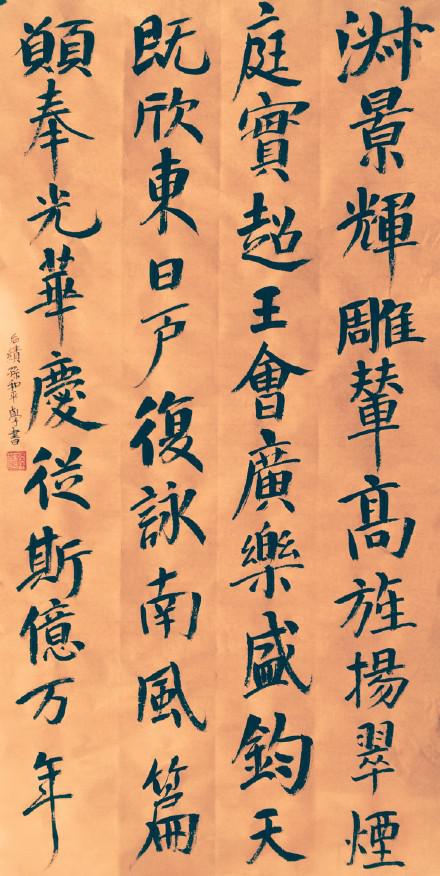 淑景輝雕輦高旌揚翠煙
庭實超王會廣樂盛鈞天
既欣東日户復詠南風篇
願奉光華慶從斯億万年
孫和平學書